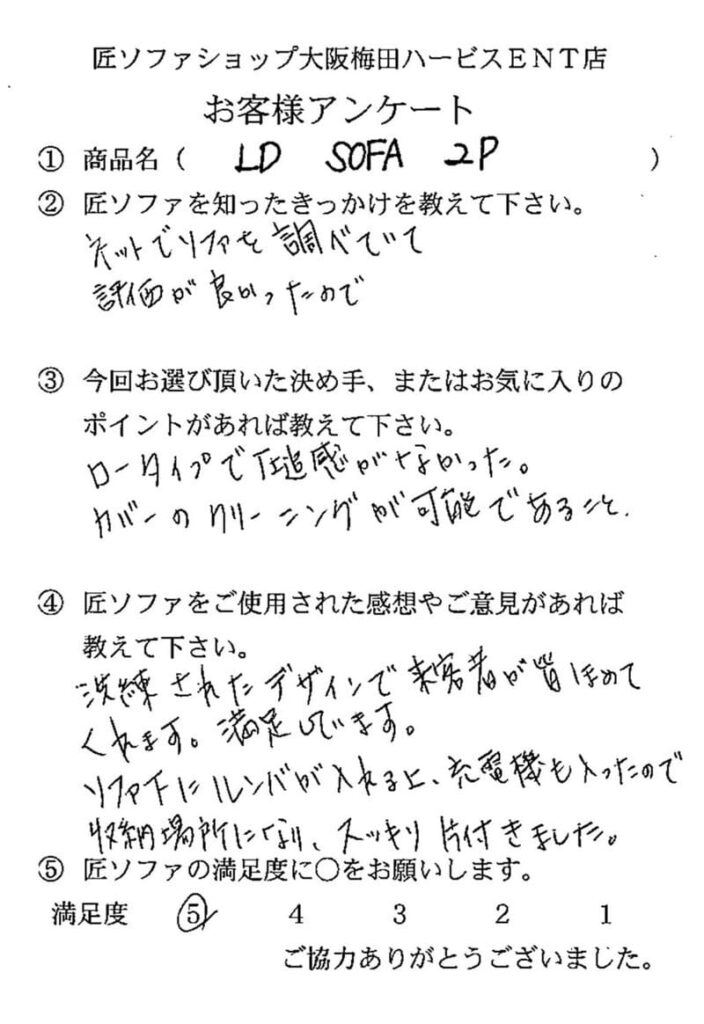 匠ソファショップ大阪梅田ハービスENT店
お客様アンケート
① 商品名（ LD SOFA 2P ）
② 匠ソファを知ったきっかけを教えて下さい。
ネットでソファを調べていて
評価が良かったので
③ 今回お選び頂いた決め手、またはお気に入りの
ポイントがあれば教えて下さい。
ロータイプで圧迫感がなかった。
カバーのクリーニングが可能であること.
④ 匠ソファをご使用された感想やご意見があれば
教えて下さい。
洗練されたデザインで来客者が皆ほめて
くれます。満足しています。
ソファ下にルンバが入れる上、充電機も入ったので
収納場所になり、スッキリ片付きました。
⑤ 匠ソファの満足度に○をお願いします。
満足度 5 4 3 2 1
ご協力ありがとうございました。